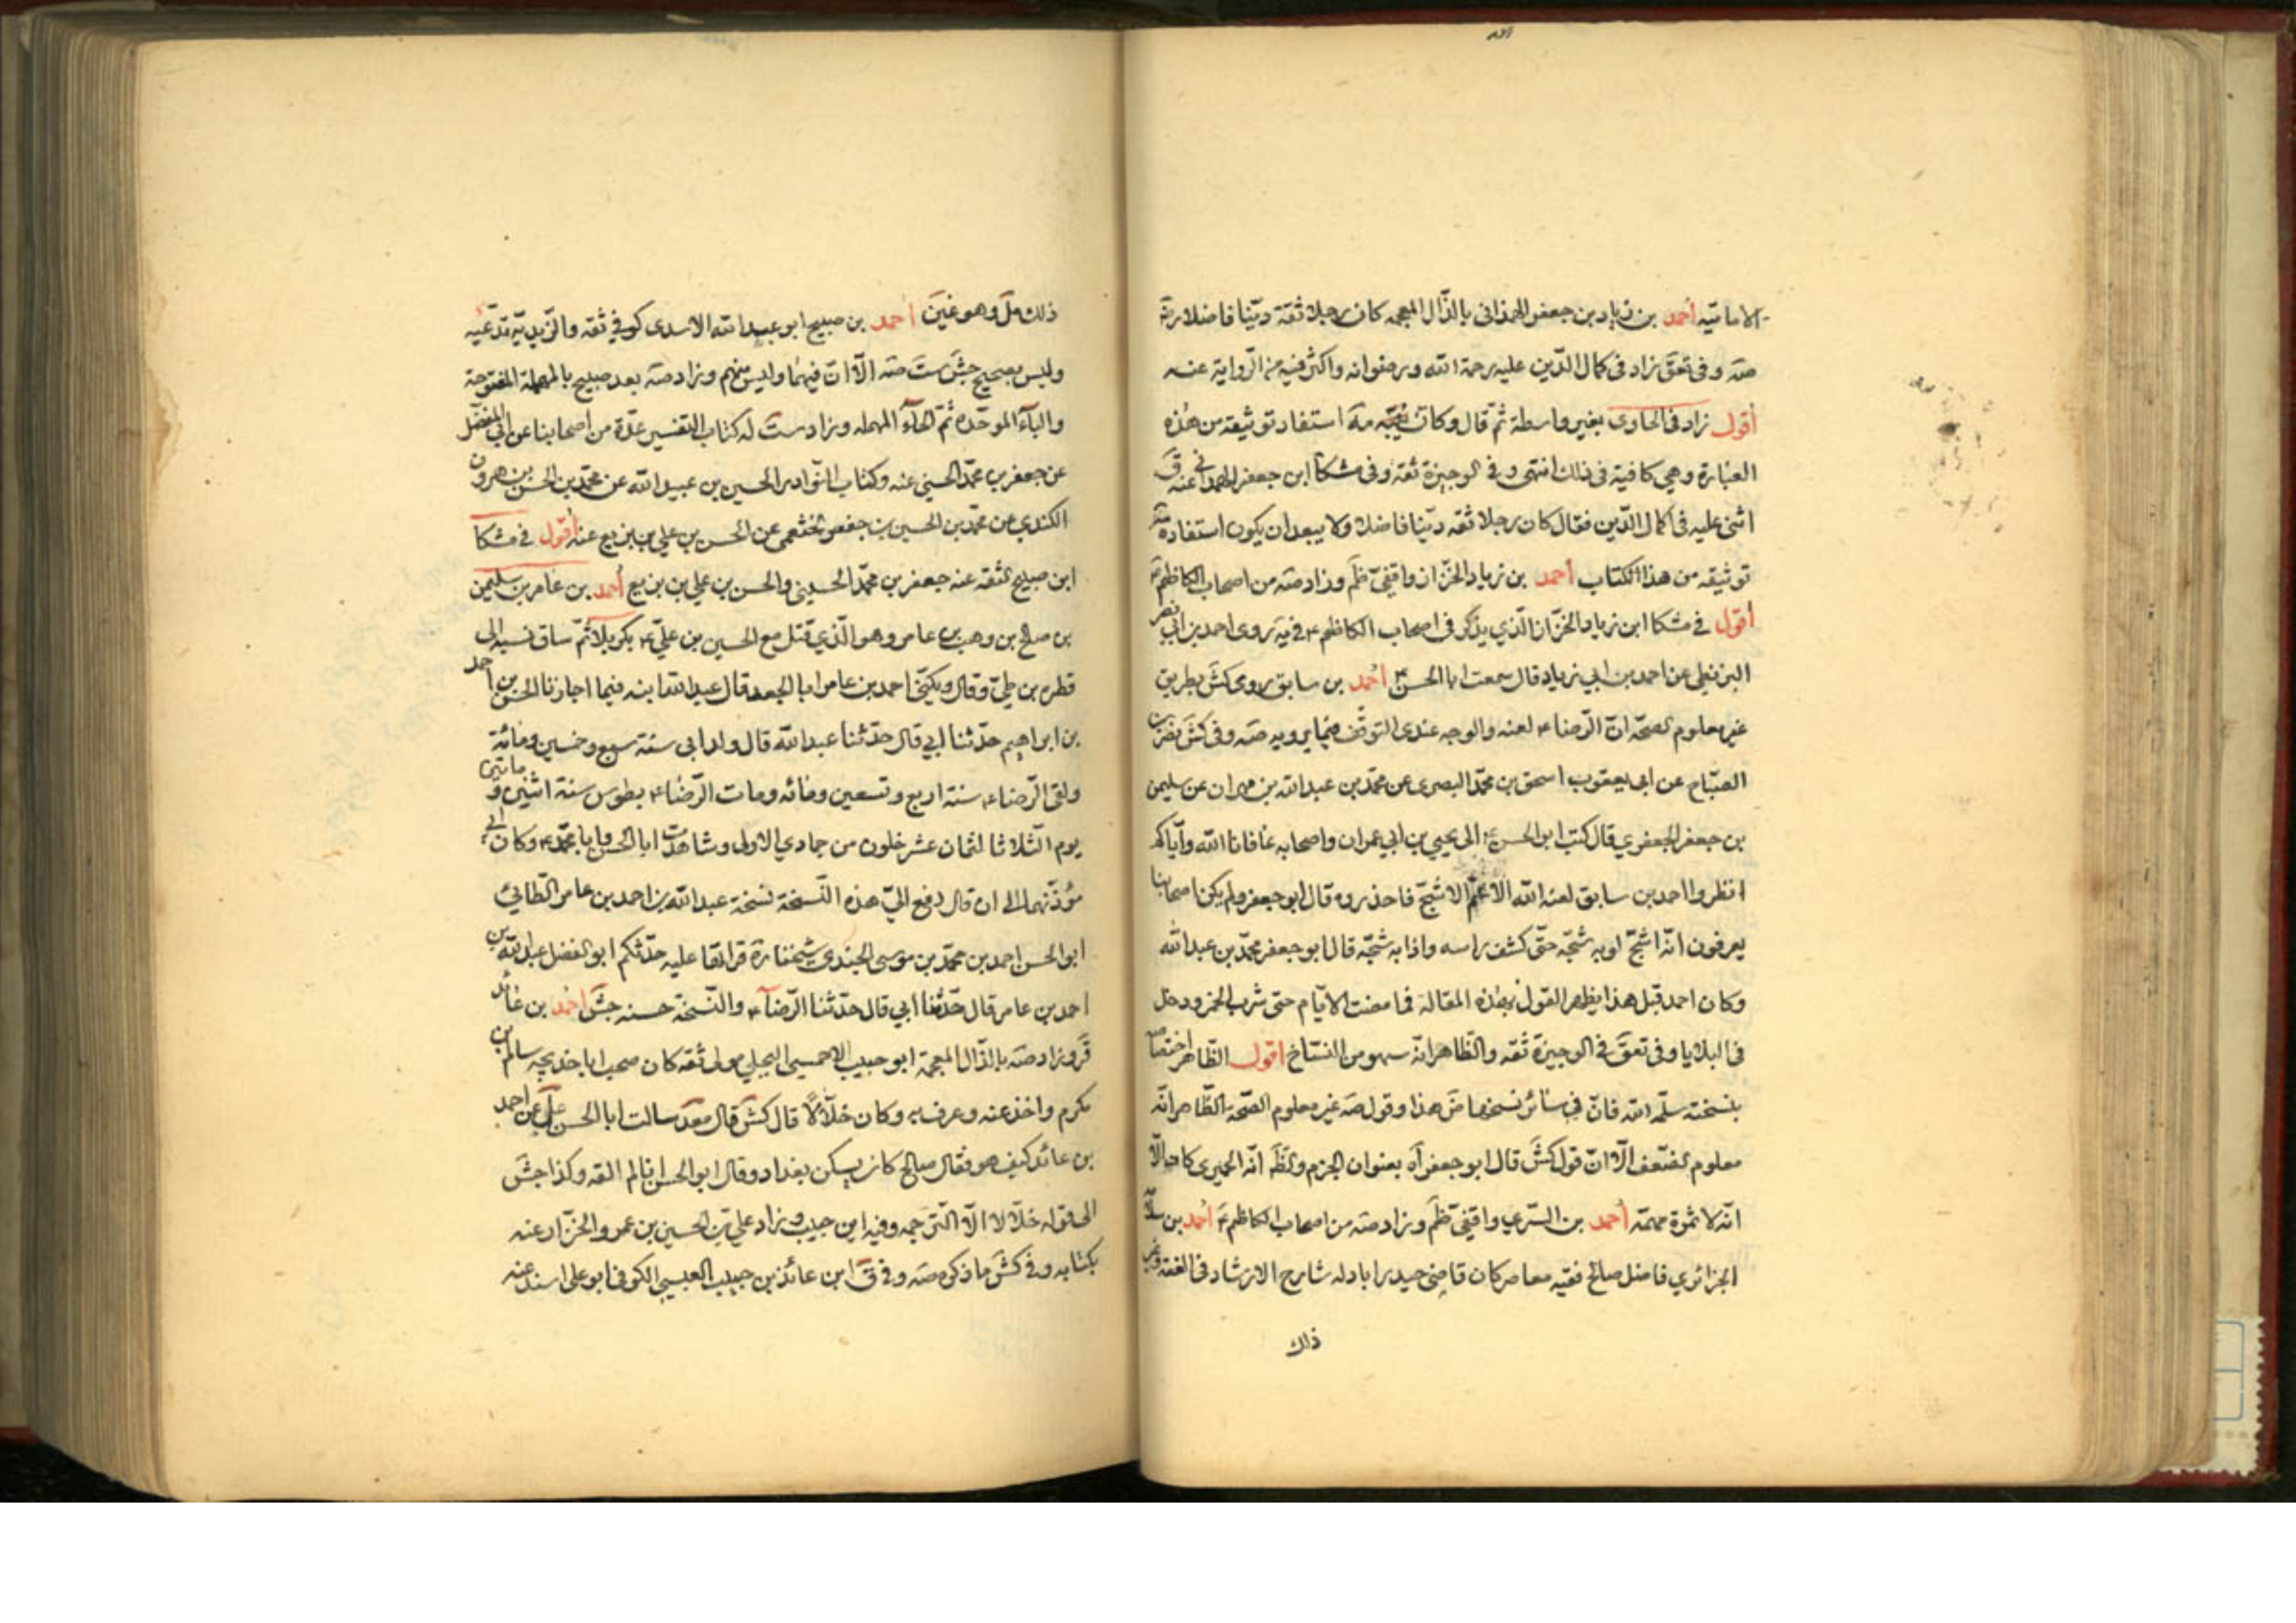 الاماميّه أحمد بن زياد بن جعفر الهمذانى بالذّال المعجمه كان رجلا ثقة ديّنا فاضلا رضي
صه وفى تعق زاد فى كمال الدّين عليه رحمة الله ورضوانه واكثر فيه من الرّواية عنه
أقول زاد فى الحاوى بغير واسطة ثمّ قال وكانّ استفاد توثيقه من هذه
العبارة وهي كافية فى ذلك انتهى و فى الوجيزة ثقة وفى مشكا ابن جعفر الهمدانى عنه ق
اثنى عليه فى اكمال الدّين فقال كان رجلا ثقه ديّنا فاضلا ولا يبعد ان يكون استفادة
توثيقه من هذا الكتاب أحمد بن زياد الخزّاز واقفىّ ظم وزاد صه من اصحاب الكاظم ع
أقول في مشكا ابن زياد الخزّاز الّذي يذكر فى اصحاب الكاظم ع فيه روى احمد بن ابي نصر
البزنطى عن احمد بن ابي زياد قال سمعت ابا الحسن ع أحمد بن سابق روى كش بطريق
غير معلوم الصحّه انّ الرّضا ع لعنه والوجه عندى التوقّف فيما يرويه صه وفى كش نصر بن
الصبّاح عن ابى يعقوب اسحق بن محمّد البصرى عن محمّد بن عبدالله بن مهران عن سليمن
بن جعفر الجعفري قال كتب ابو الحسن ع الى يحيى بن ابي عمران واصحابه عافانا الله وايّاكم
انظروا احمد بن سابق لعنه الله الاعثم الاشجّ فاحذروه قال ابو جعفر ولم يكن اصحابنا
يعرفون انّه اشجّ او به شجّه حتّى كشف راسه واذا به شجّه قال ابو جعفر محمّد بن عبدالله
وكان احمد قبل هذا يظهر القول بهذه المقالة فما مضت الايّام حتى شرب الخمر ودخل
فى البلايا وفى تعق فى الوجيزة ثقه والظّاهر انّه سهو من النسّاخ اقول الظّاهر اختصاصه
بنسخته سلّمه الله فانّ في سائر نسخها ض هذا وقول صه غير معلوم الصّحة الظّاهر انّه
معلوم الضّعف الّا انّ قول كش قال ابو جعفر اه بعنوان الجزم والظّ انّه الحميرى كاف الّا
انّه لا ثمرة مهمّة أحمد بن السّري واقفىّ ظم وزاد صه من اصحاب الكاظم ع أحمد بن سلامة
الجزائري فاضل صالح فقيه معاصر كان قاضى حيدراباد له شارح الارشاد فى الفقه وغير
ذلك
ذلك مل وهو غين أحمد بن صبيح ابو عبدالله الاسدى كوفي ثقه والزّيديّه تدّعيه
وليس بصحيح جش ست صه الّا انّ فيهما وليس منهم وزاد صه بعد صبيح بالمهملة المفتوحة
والباء الموحّده ثمّ الحاء المهمله وزاد ست له كتاب التفسير عدّة من اصحابنا عن ابي المفضّل
عن جعفر بن محمّد الحسنى عنه وكتاب النّوادر الحسين بن عبيدالله عن محمّد بن الحسن بن هرون
الكندى عن محمّد بن الحسين بن جعفر الخثعمى عن الحسن بن علي بن بزيع عنه أقول في مشكا
ابن صبيح الثقه عنه جعفر بن محمّد الحسينى والحسن بن علي بن بزيع أحمد بن عامر بن سليمن
بن صالح بن وهب بن عامر وهو الّذي قتل مع الحسين بن علىّ ع بكربلا ثمّ ساق نسبه الى
قطره بن طيّ وقال ويكنّى احمد بن عامر ابا الجعد قال عبدالله ابنه فيما اجازنا الحسن بن احمد
بن ابراهيم حدّثنا ابي قال حدّثنا عبدالله قال ولد ابى سنة سبع وخمسين ومائة
ولقى الرّضا ع سنة اربع وتسعين ومائه ومات الرّضا ع بطوس سنة اثنين و مائتين
يوم الثّلاثا لثمان عشر خلون من جمادى الاولى وشاهدت ابا الحسن وابا محمّد ع وكان ابي
مؤذّنهما الى ان قال دفع اليّ هذه النّسخة نسخة عبدالله بن احمد بن عامر الطّائي
ابو الحسن احمد بن محمّد بن موسى الجندى شيخنا ره قراتها عليه حدّثكم ابو الفضل عبدالله بن
احمد بن عامر قال حدّثنا ابي قال حدّثنا الرّضا ع والنّسخة حسنه جش أحمد بن عائذ
ق وزاد صه بالذّال المعجمة ابو حبيب الاحمسى البجلي مولى ثقه كان صحب ابا خديجه سالم بن
مكرم واخذ عنه وعرف به وكان خلّالا قال كش قال سالت ابا الحسن علي عن احمد
بن عائذ كيف هو فقال صالح كان يسكن بغداد وقال ابو الحسن انا لم القه وكذا جش
الى قوله خلّالا الّا التّرجمه وفيه ابن حبيب وزاد علي بن الحسين بن عمرو الخزّاز عنه
بكتابه و في كش ما ذكره صه و فى ق ابن عائذ بن حبيب العبسى الكوفى ابو على اسند عنه